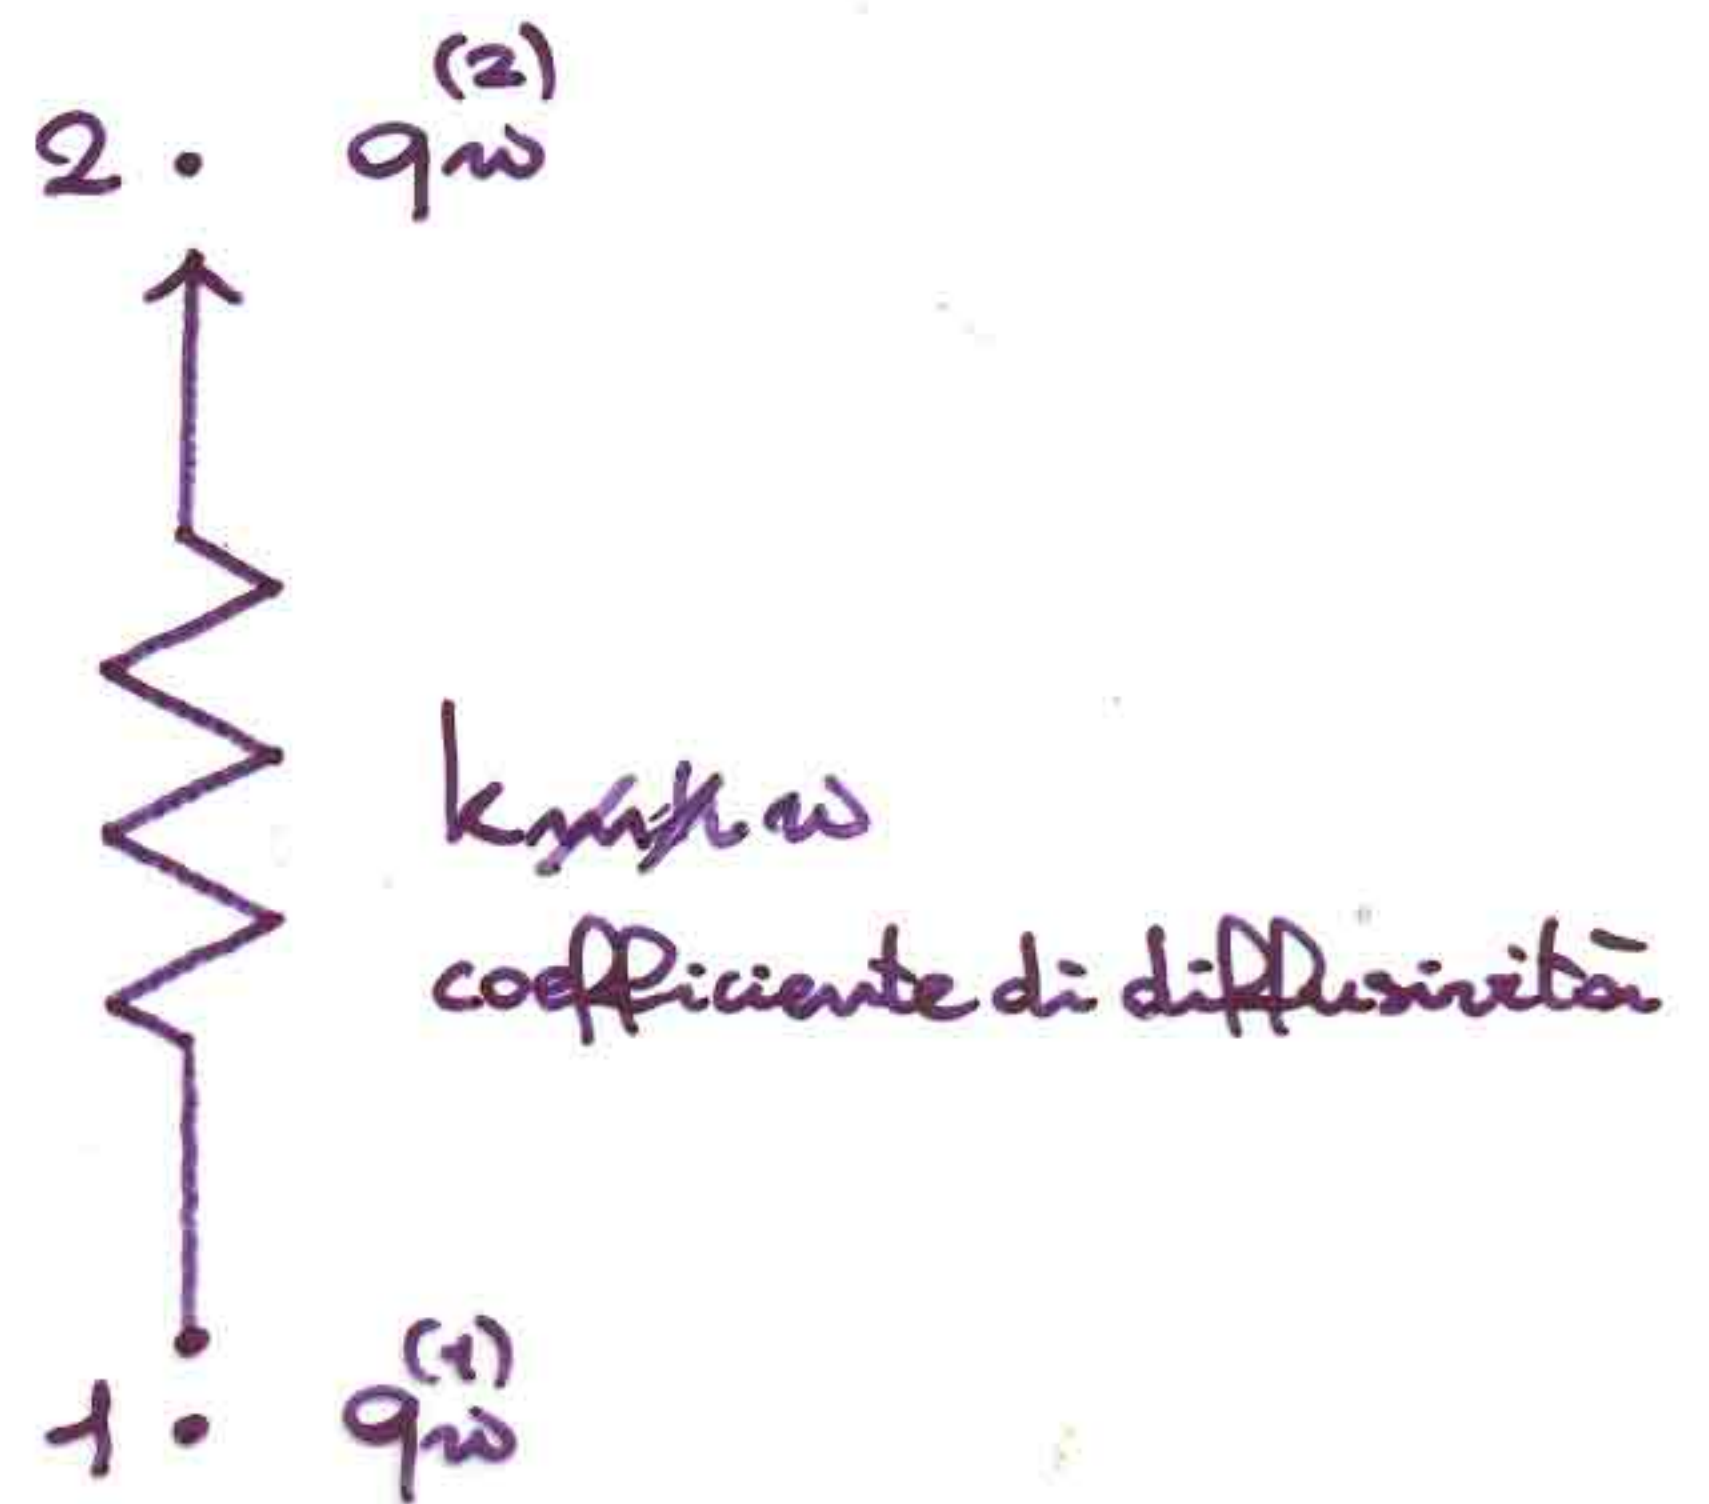 2 · qw(2)
k w
coefficiente di diffusività
1 · qw(1)